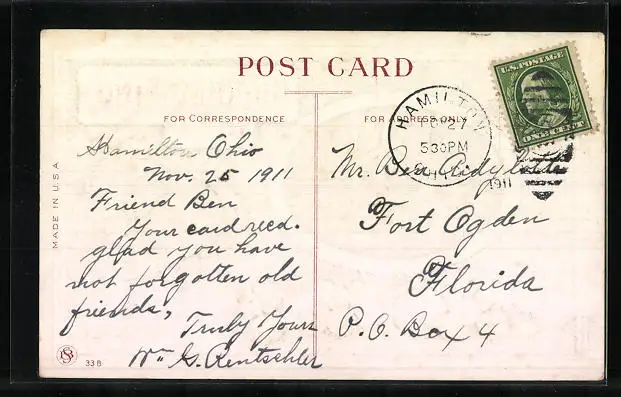 POST CARD
FOR CORRESPONDENCE
FOR ADDRESS ONLY
U.S. POSTAGE
ONE CENT
HAMILTON
530PM
OHIO
1911
Hamilton Ohio
Nov. 25 1911
Friend Ben
Your card recd.
glad you have
not forgotten old
friends,
Truly Yours
Wm G. Rentschler
Mr. Ben
Fort Ogden
Florida
P.O. Box 4
MADE IN U.S.A
33 B